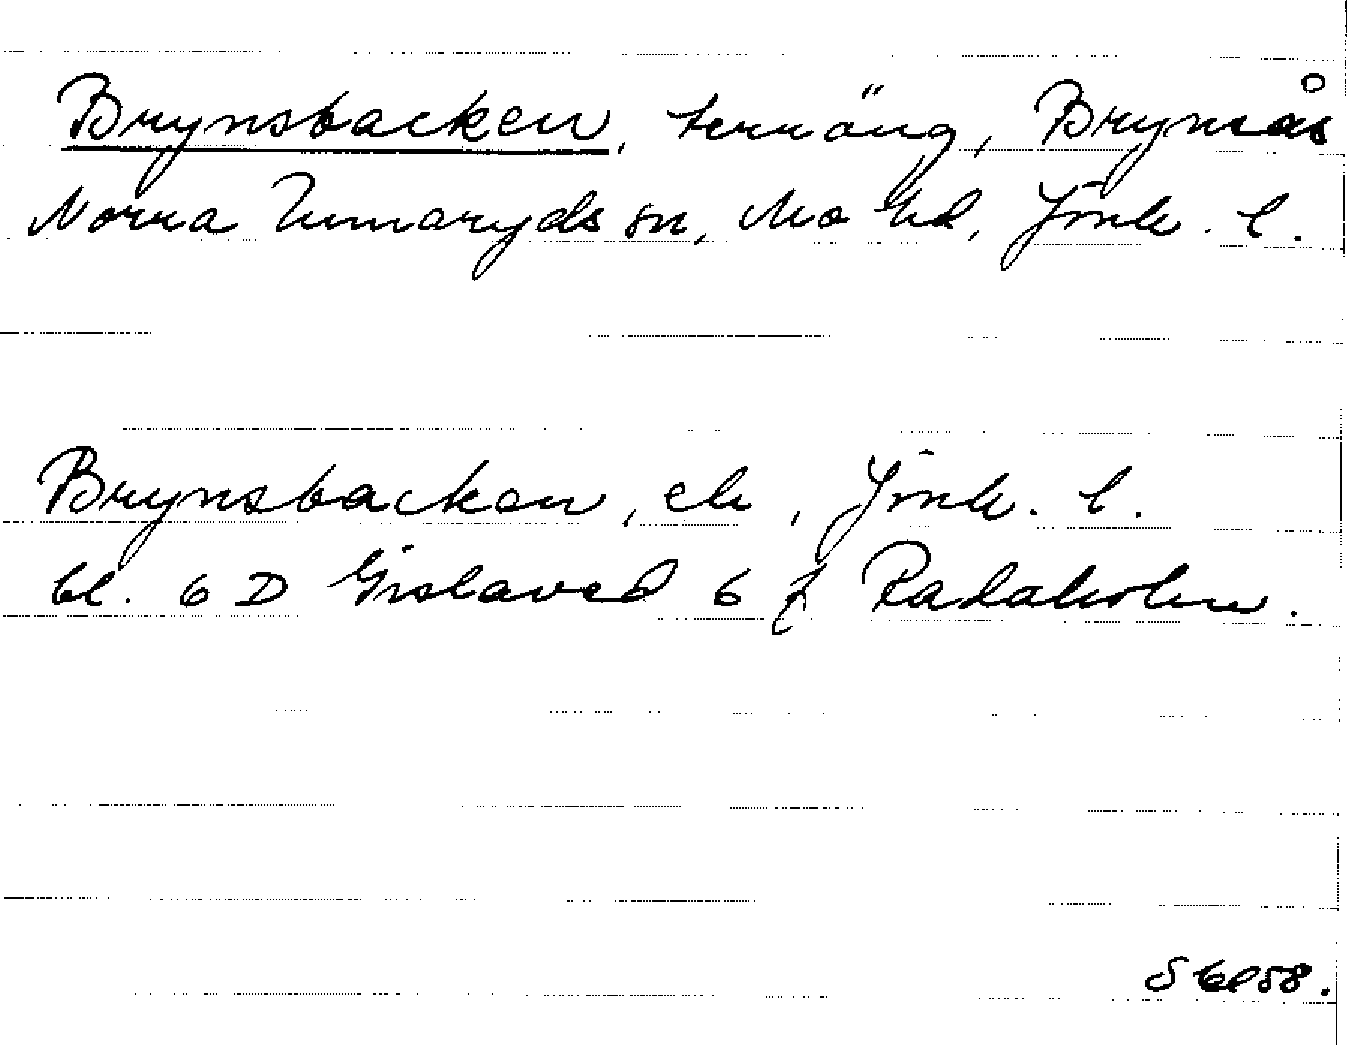 Brynsbacken, terräng, Brynsås
Norra Unnaryds sn, Mo hd, Jönk. l.
Brynsbacken, ek, Jönk. l.
bl. 6 D Gislaved 6 f Radaholm.